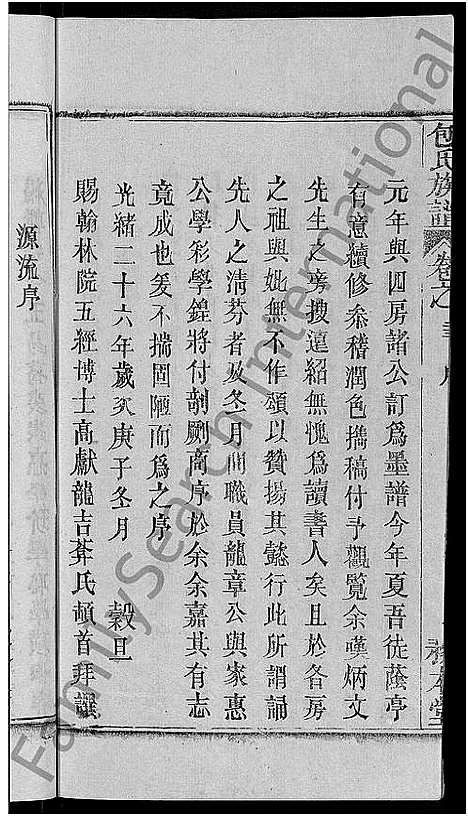 包氏族譜 卷之
元年與四房諸公訂爲墨譜今年夏吾徒蔭亭
有意續修叅稽潤色携稿付予觀覽余嘆炳文
先生之旁搜遠紹無愧爲讀書人矣且於各房
之祖與妣無不作頌以贊揚其懿行此所謂誦
先人之清芬者及冬月間職員龍章公與家惠
公學彩學鍠將付剞劂商序於余余嘉其有志
竟成也爰不揣固陋而爲之序
光緒二十六年歲次庚子冬月 穀旦
賜翰林院五經博士高獻龍吉葊氏頓首拜譔
源流序
FamilySearch International